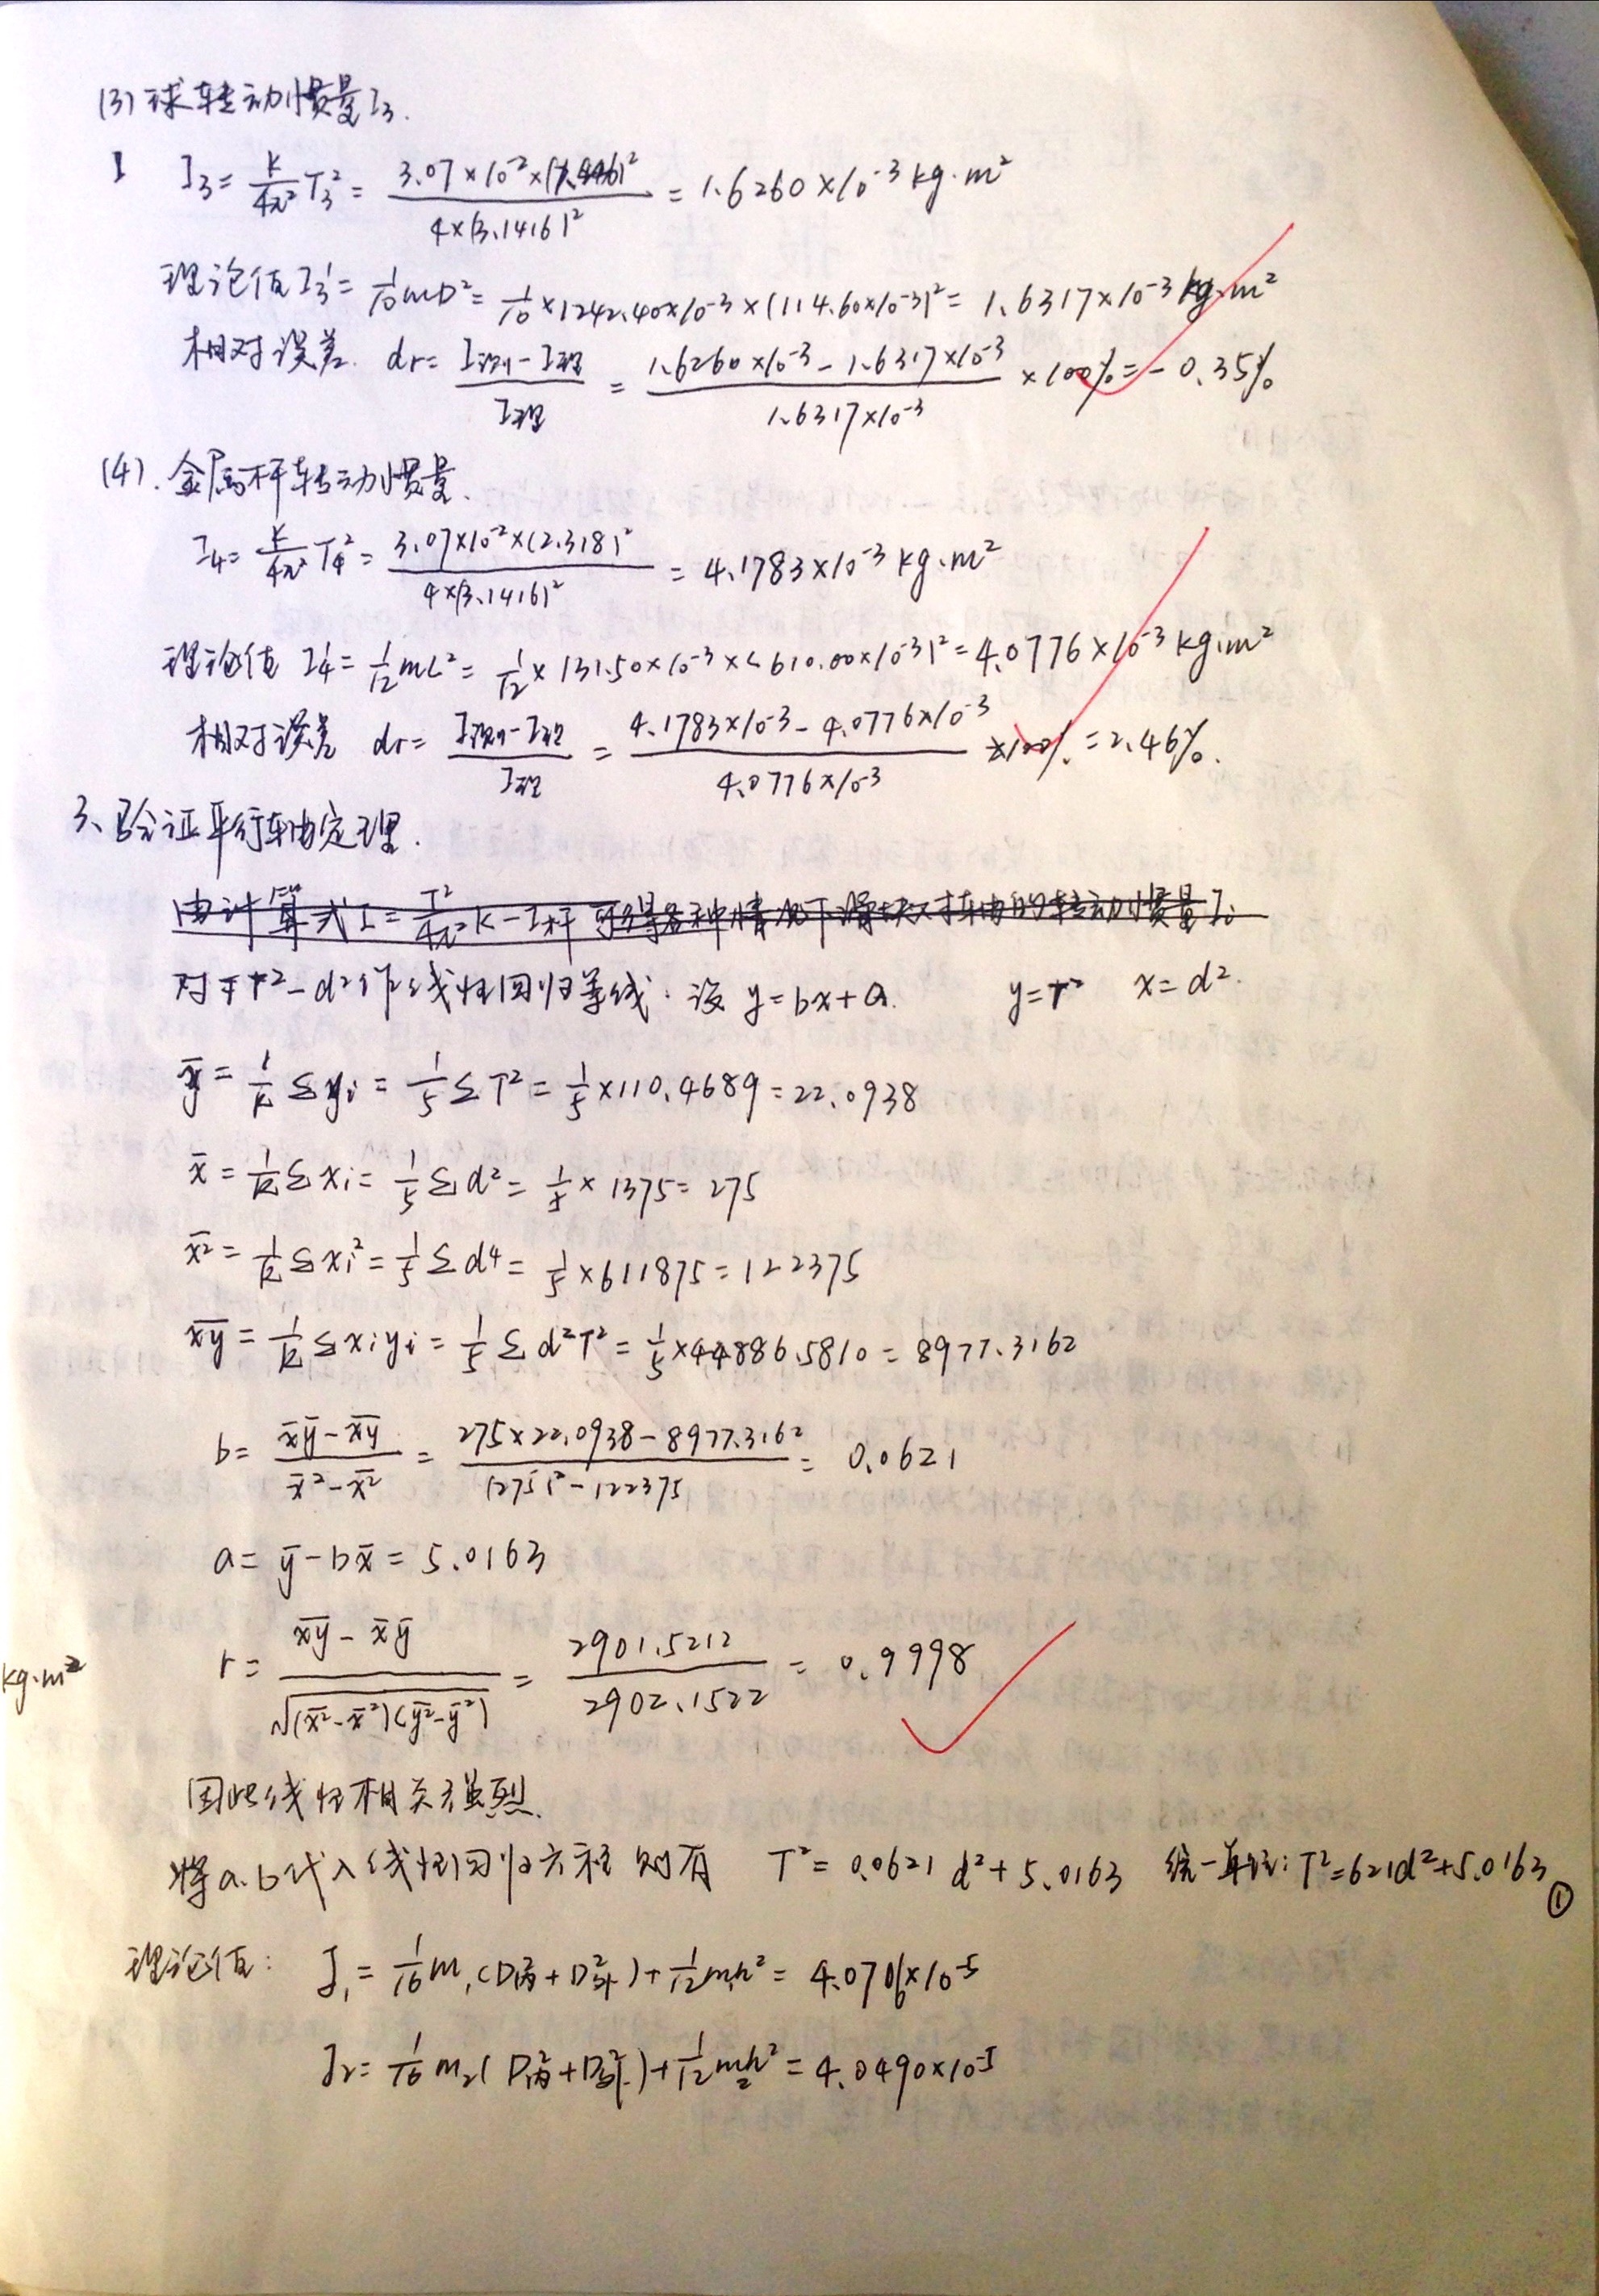 (3) 球转动惯量I₃.
I I₃= K/4π² T₃² = 3.07×10⁻²×( )²/4×(3.1416)² = 1.6260×10⁻³kg·m²
理论值I₃'= 1/10 mD²= 1/10×1242.40×10⁻³×(114.60×10⁻³)²= 1.6317×10⁻³kg·m²
相对误差. dr= I测-I理/I理 = 1.6260×10⁻³-1.6317×10⁻³/1.6317×10⁻³ ×100%=-0.35%
(4). 金属杆转动惯量.
I₄= K/4π² T₄²= 3.07×10⁻²×(2.318)²/4×(3.1416)² = 4.1783×10⁻³kg·m²
理论值 I₄'= 1/12 mL²= 1/12×131.50×10⁻³×(610.00×10⁻³)²=4.0776×10⁻³kg·m²
相对误差 dr= I测-I理/I理 = 4.1783×10⁻³-4.0776×10⁻³/4.0776×10⁻³ ×100%=2.46%.
3、验证平行轴定理.
由计算式I=T²/4π² K-I杆 可得各种情况下滑块对轴的转动惯量I₀
对于T²-d²作线性回归等线. 设 y=bx+a. y=T² x=d².
ȳ= 1/k Σyi= 1/5 ΣT²= 1/5×110.4689=22.0938
x̄= 1/k Σxi= 1/5 Σd²= 1/5×1375=275
x̅²= 1/k Σxi²= 1/5 Σd⁴= 1/5×611875=122375
x̅y̅= 1/k Σxiyi= 1/5 Σd²T²= 1/5×44886.5810=8977.3162
b= x̄ȳ-x̅y̅/x̄²-x̅²= 275×22.0938-8977.3162/(275)²-122375= 0.0621
a= ȳ-bx̄=5.0163
r= x̅y̅-x̄ȳ/√(x̅²-x̄²)(y̅²-ȳ²) = 2901.5212/2902.1522 = 0.9998
kg·m²
因此线性相关强烈.
将a.b代入线性回归方程 则有 T²=0.0621d²+5.0163 统一单位:T²=621d²+5.0163 ①
理论值: J₁= 1/16 m₁(D内²+D外²)+1/12 m₁h²= 4.0706×10⁻⁵
J₂= 1/16 m₂(D内²+D外²)+1/12 m₂h²=4.0490×10⁻⁵